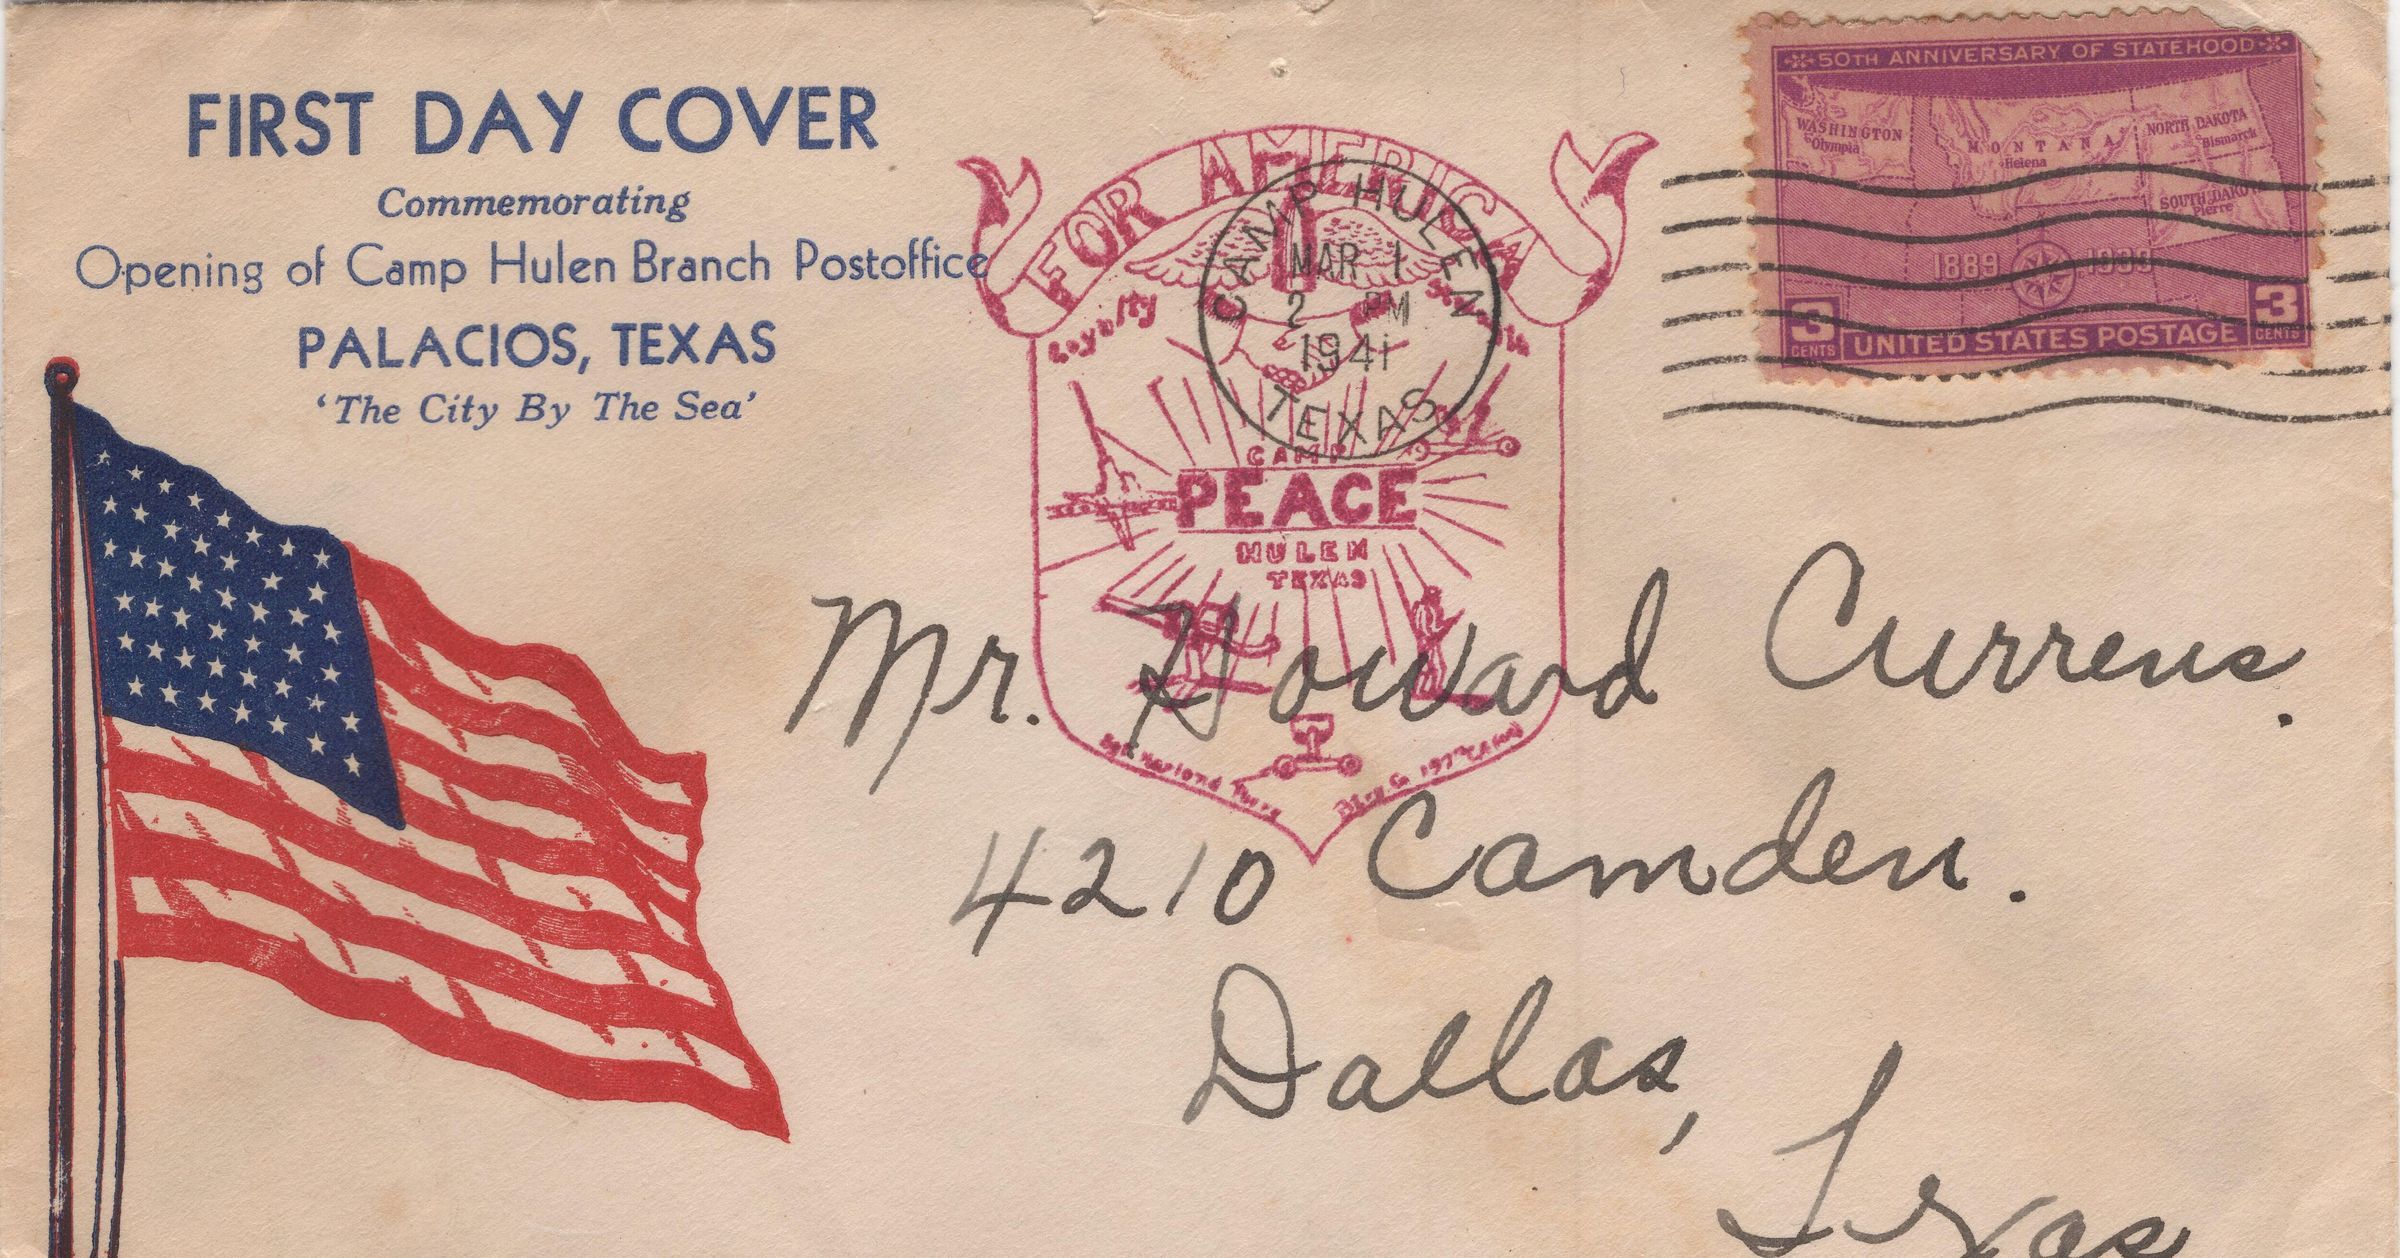 FIRST DAY COVER
Commemorating
Opening of Camp Hulen Branch Postoffice
PALACIOS, TEXAS
'The City By The Sea'
50TH ANNIVERSARY OF STATEHOOD
WASHINGTON
Olympia
MONTANA
Helena
NORTH DAKOTA
Bismarck
SOUTH DAKOTA
Pierre
1889 1939
3 CENTS UNITED STATES POSTAGE 3 CENTS
FOR AMERICA
Loyalty
CAMP HULEN
MAR 1
2 PM
1941
TEXAS
CAMP
PEACE
HULEN
TEXAS
Btry. G 197th CA
Mr. Howard Currens.
4210 Camden.
Dallas,
Texas